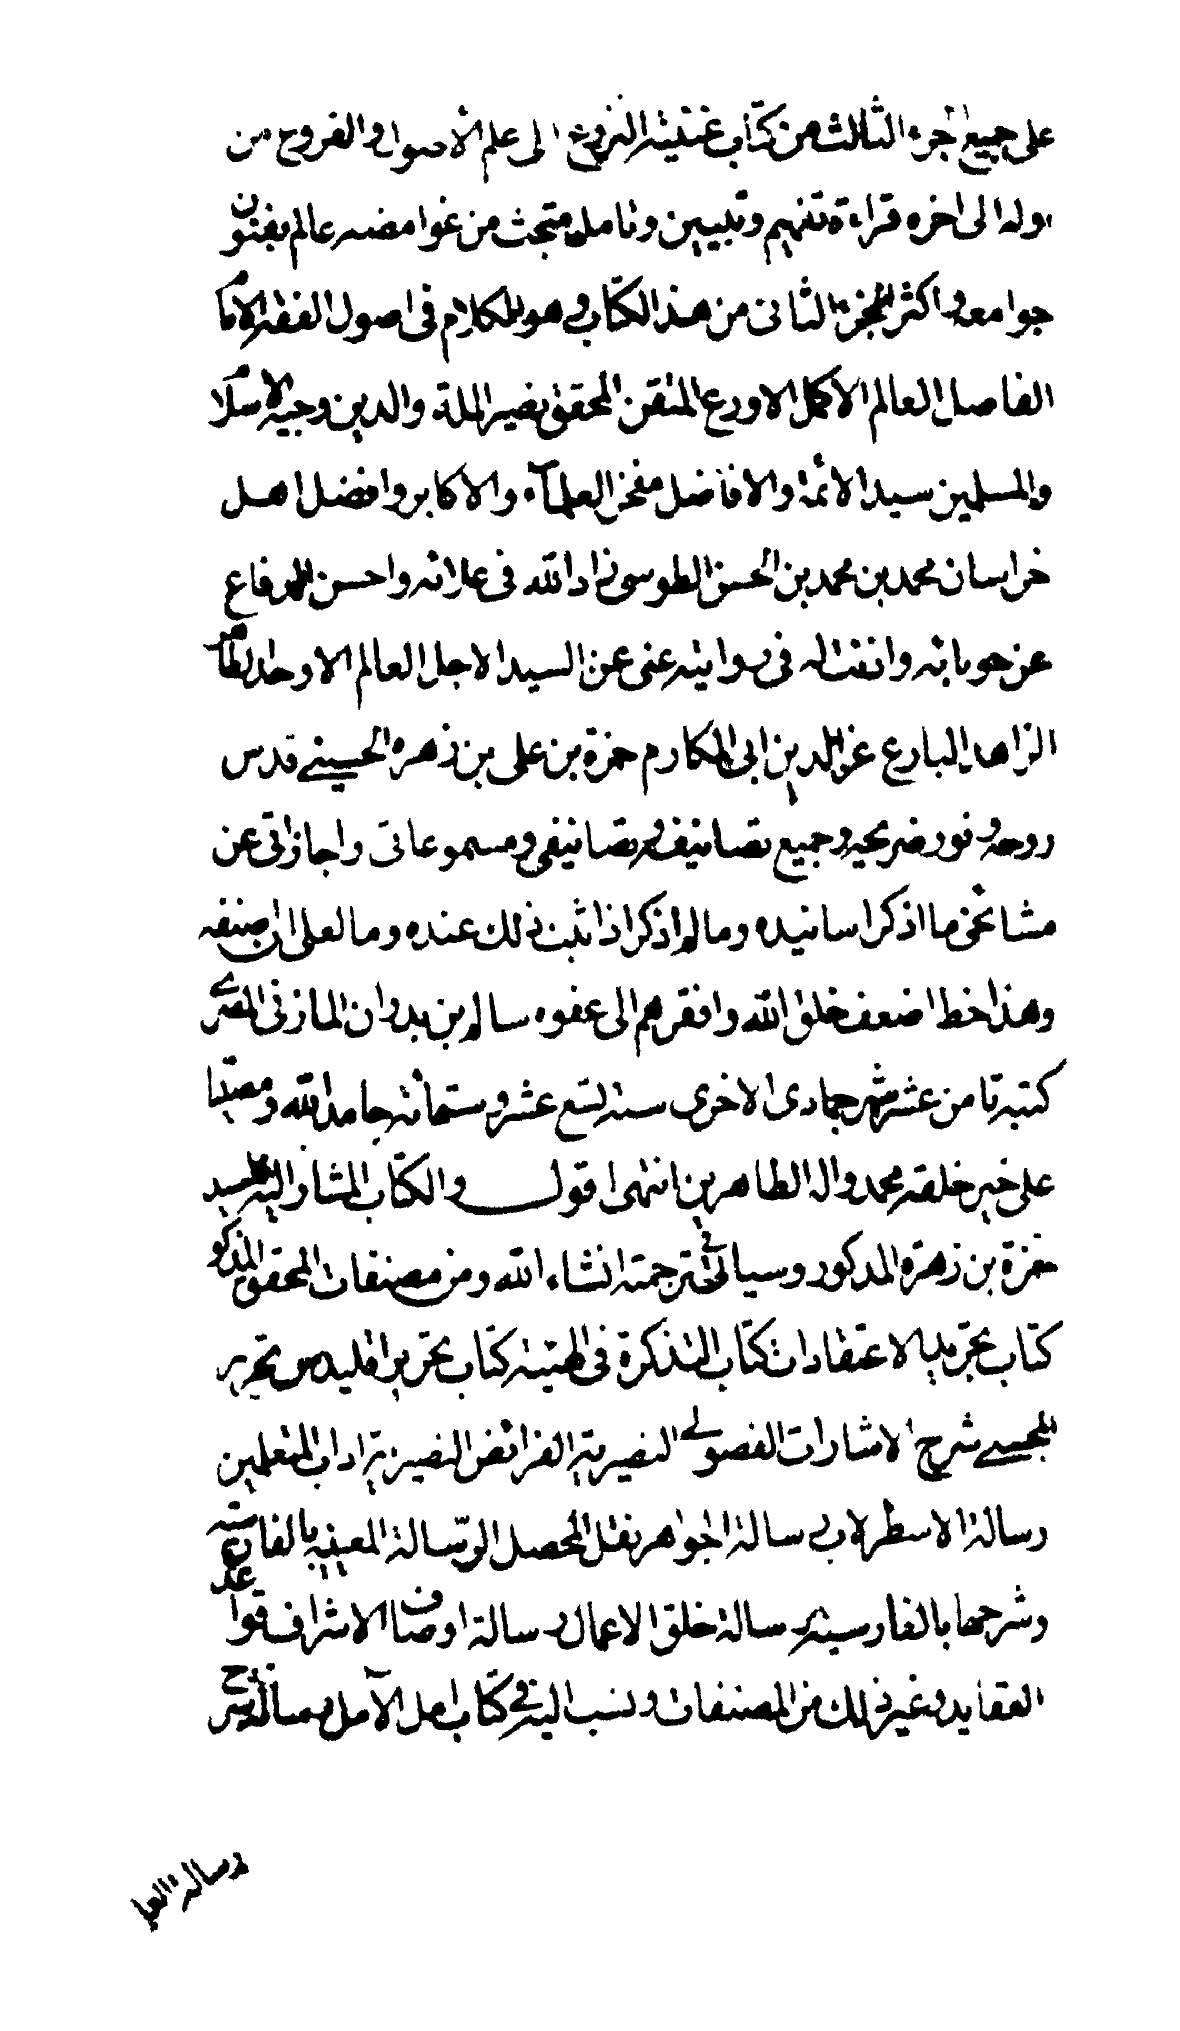 على جميع الجزء الثالث من كتاب غنية النزوع الى علم الاصول والفروع من
اوله الى اخره قراءة تفهيم وتبيين وتامل متبحث من غوامضه عالم بفنون
جوامعه واكثر الجزء الثاني من هذا الكتاب وهو الكلام في اصول الفقه الامام
الفاضل العالم الاكمل الاورع المتقن المحقق نصير الملة والدين وجيه الاسلام
والمسلمين سيد الائمة والافاضل مفخر العلماء والاكابر وافضل اهل
خراسان محمد بن محمد بن الحسن الطوسي زاد الله في علائه واحسن الدفاع
عن حوبائه واذنت له في روايته عني عن السيد الاجل العالم الاوحد الطاهر
الزاهد البارع عز الدين ابي المكارم حمزة بن علي بن زهره الحسيني قدس
روحه ونور ضريحه وجميع تصانيفه وتصانيفي ومسموعاتي واجازاتي عن
مشائخي ما اذكر اسانيده وما لم اذكر اذا ثبت ذلك عنده وما لعلي ان اصنفه
وهذا خط اضعف خلق الله وافقرهم الى عفوه سالم بن بدران المازني المصري
كتبه ثامن عشر شهر جمادى الاخرى سنة تسع عشر وستمائة حامدا لله ومصليا
على خير خلقه محمد واله الطاهرين انتهى اقول والكتاب المشار اليه للسيد
حمزة بن زهرة المذكور وسياتي ترجمته انشاء الله ومن مصنفات المحقق المذكور
كتاب تجريد الاعتقادات كتاب التذكرة في الهيئة كتاب تحرير اقليدس تحرير
المجسطي شرح الاشارات الفصول النصيرية الفرائض النصيرية اداب المتعلمين
رسالة الاسطرلاب رسالة الجواهر نقل المحصل الرسالة المعينية بالفارسية
وشرحها بالفارسية رسالة خلق الاعمال رسالة اوصاف الاشراف قواعد
العقايد وغير ذلك من المصنفات ونسب اليه في كتاب امل الآمل رسالة شرح
رسالة العلم